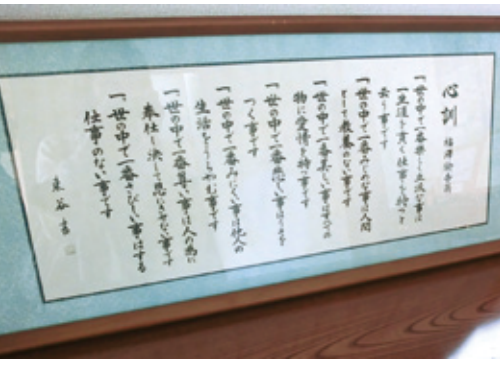 心訓 福澤諭吉
一、世の中で一番楽しく立派な事は
一生涯を貫く仕事を持つと
云う事です
一、世の中で一番みじめな事は人間
として教養のない事です
一、世の中で一番美しい事はすべての
物に愛情を持つ事です
一、世の中で一番悲しい事はうそを
つく事です
一、世の中で一番みにくい事は他人の
生活をうらやむ事です
一、世の中で一番尊い事は人の為に
奉仕し決して恩にきせない事です
一、世の中で一番さびしい事はする
仕事のない事です